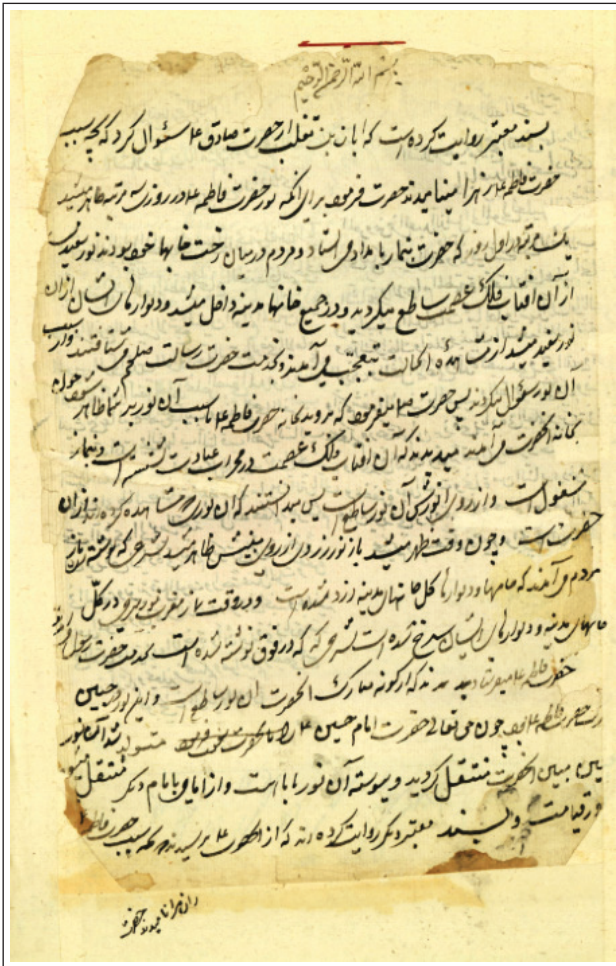 بسم الله الرحمن الرحیم
بسند معتبر روایت کرده است که ابان بن تغلب از حضرت صادق ع سئوال کرد که بچه سبب
حضرت فاطمه ع را زهرا مینامیدند حضرت فرمود برای آنکه نور حضرت فاطمه ع در روزی سه مرتبه ظاهر میشد
یک مرتبه اول روز که حضرت بنماز بامداد می ایستاد و مردم در میان رخت خابها خود بودند نور سفیدی
از آن افتاب فلک عصمت ساطع میگردید و در جمیع خانها مدینه داخل میشد و دیوارهای ایشان از آن
نور سفید میشد از مشاهده الحالت تعجب می آمدند و بخدمت حضرت رسالت صلعم می شتافتند و از سبب
آن نور سئوال میکردند پس حضرت ص میفرمود که بروید بخانه حضرت فاطمه ع تا سبب آن نور بر شما ظاهر شود چون
بخانه آنحضرت می آمدند میدیدند که آن افتاب فلک عصمت در محراب عبادت نشسته است و بنماز
مشغول است و از روی انورش آن نور ساطع است پس میدانستند که آن نوری که مشاهده کرده اند از آن
حضرت است و چون وقت ظهر میشد باز نور زردی از روی مبینش ظاهر میشد بشرحی که نوشته شد باز
مردم می آمدند که جامها و دیوارها کل خانهای مدینه زرد شده است و در وقت نماز مغرب نور سرخی در کل
خانهای مدینه و دیوارهای ایشان سرخ شده است بشرحی که در فوق نوشته شده است بخدمت حضرت رسول
حضرت فاطمه ع میفرستاد میدیدند که از گونه مبارک آنحضرت آن نور ساطع است و این نور در جبین
حضرت فاطمه ع بود چون حق تعالی حضرت امام حسین ع را متولد شد آن نور
جبین آنحضرت منتقل گردید و پیوسته آن نور با ما است و از امامی بامام دیگر منتقل میشود
روز قیامت و بسند معتبر دیگر روایت کرده اند که از آنحضرت ع پرسیدند که بچه سبب حضرت فاطمه ع
را زهرا نامیدند حضرت